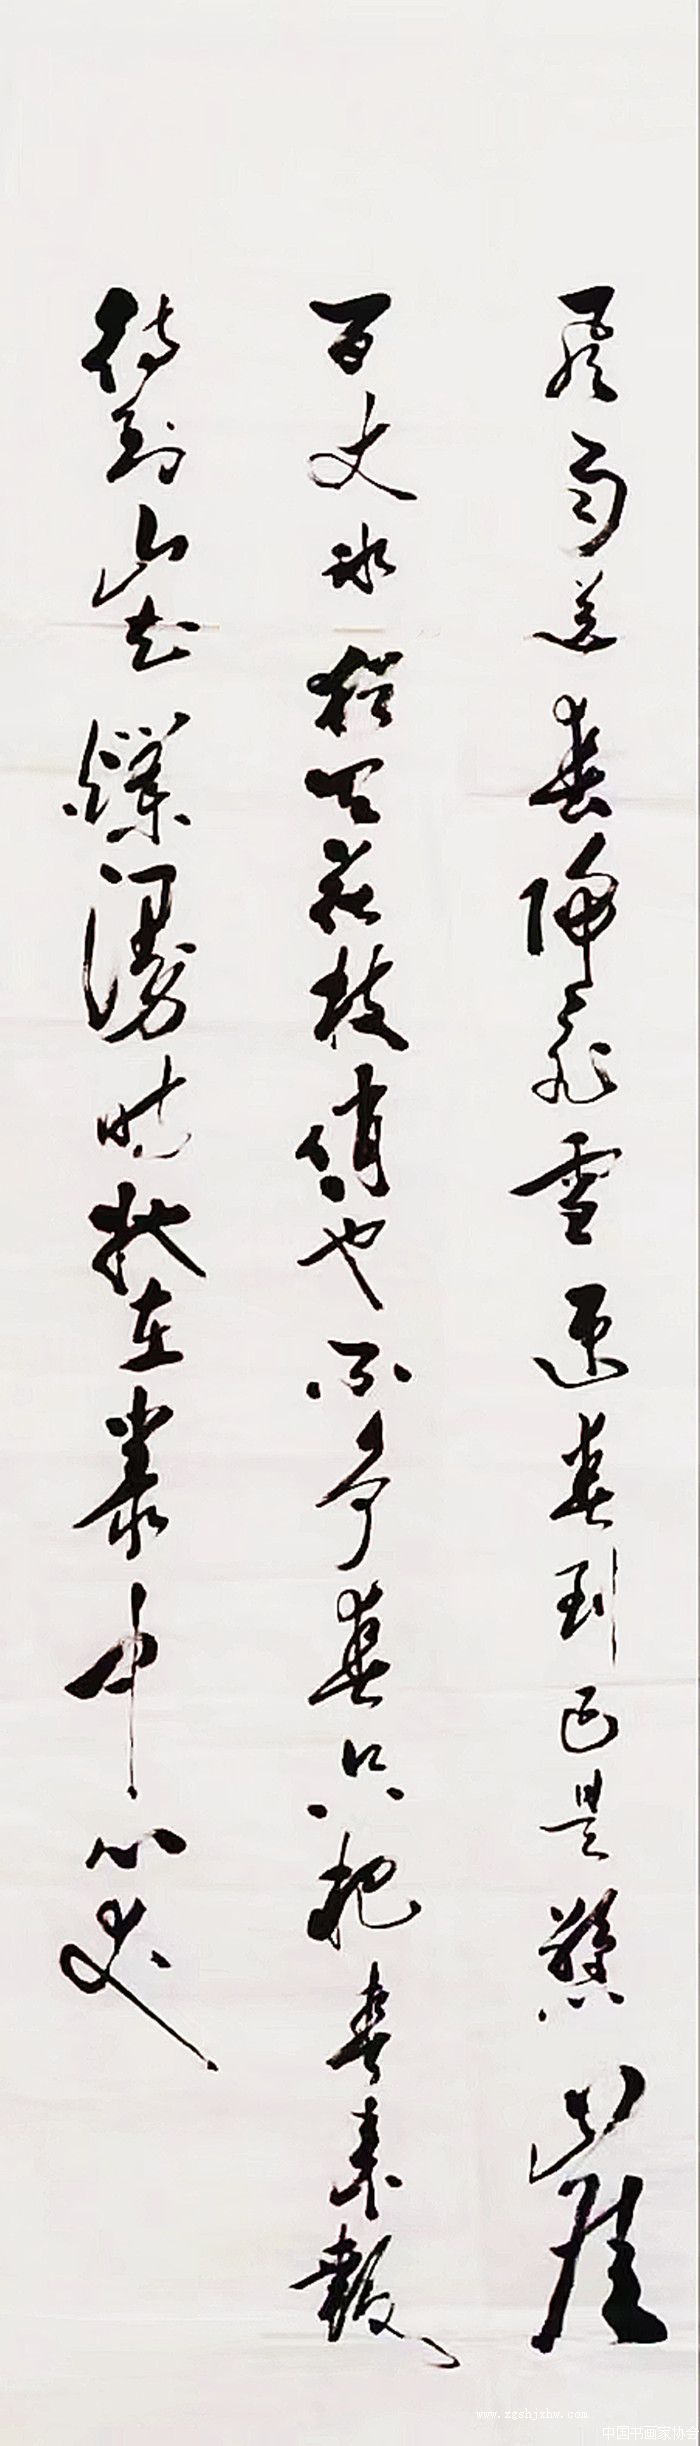 風雨送春歸飛雪迎春到已是懸崖
百丈冰猶有花枝俏也不爭春只把春來報
待到山花爛漫時她在叢中笑
www.zgshjxhw.com
中国书画家协会